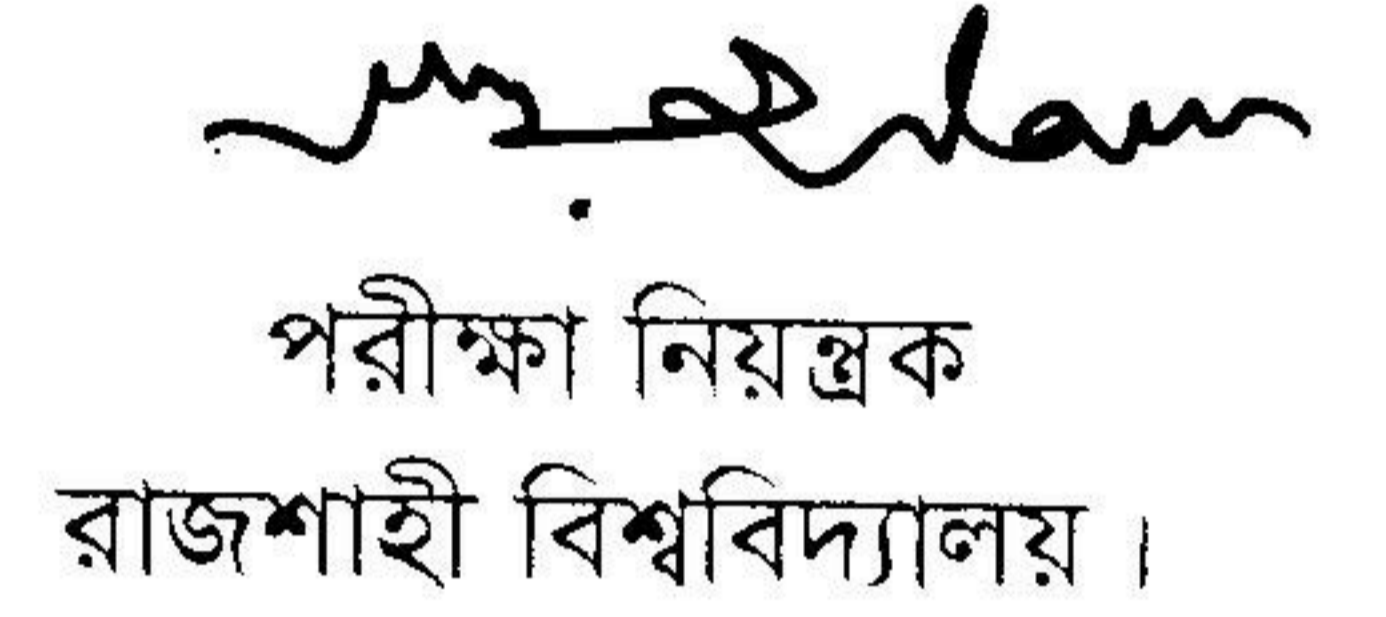 পরীক্ষা নিয়ন্ত্রক
রাজশাহী বিশ্ববিদ্যালয় ।